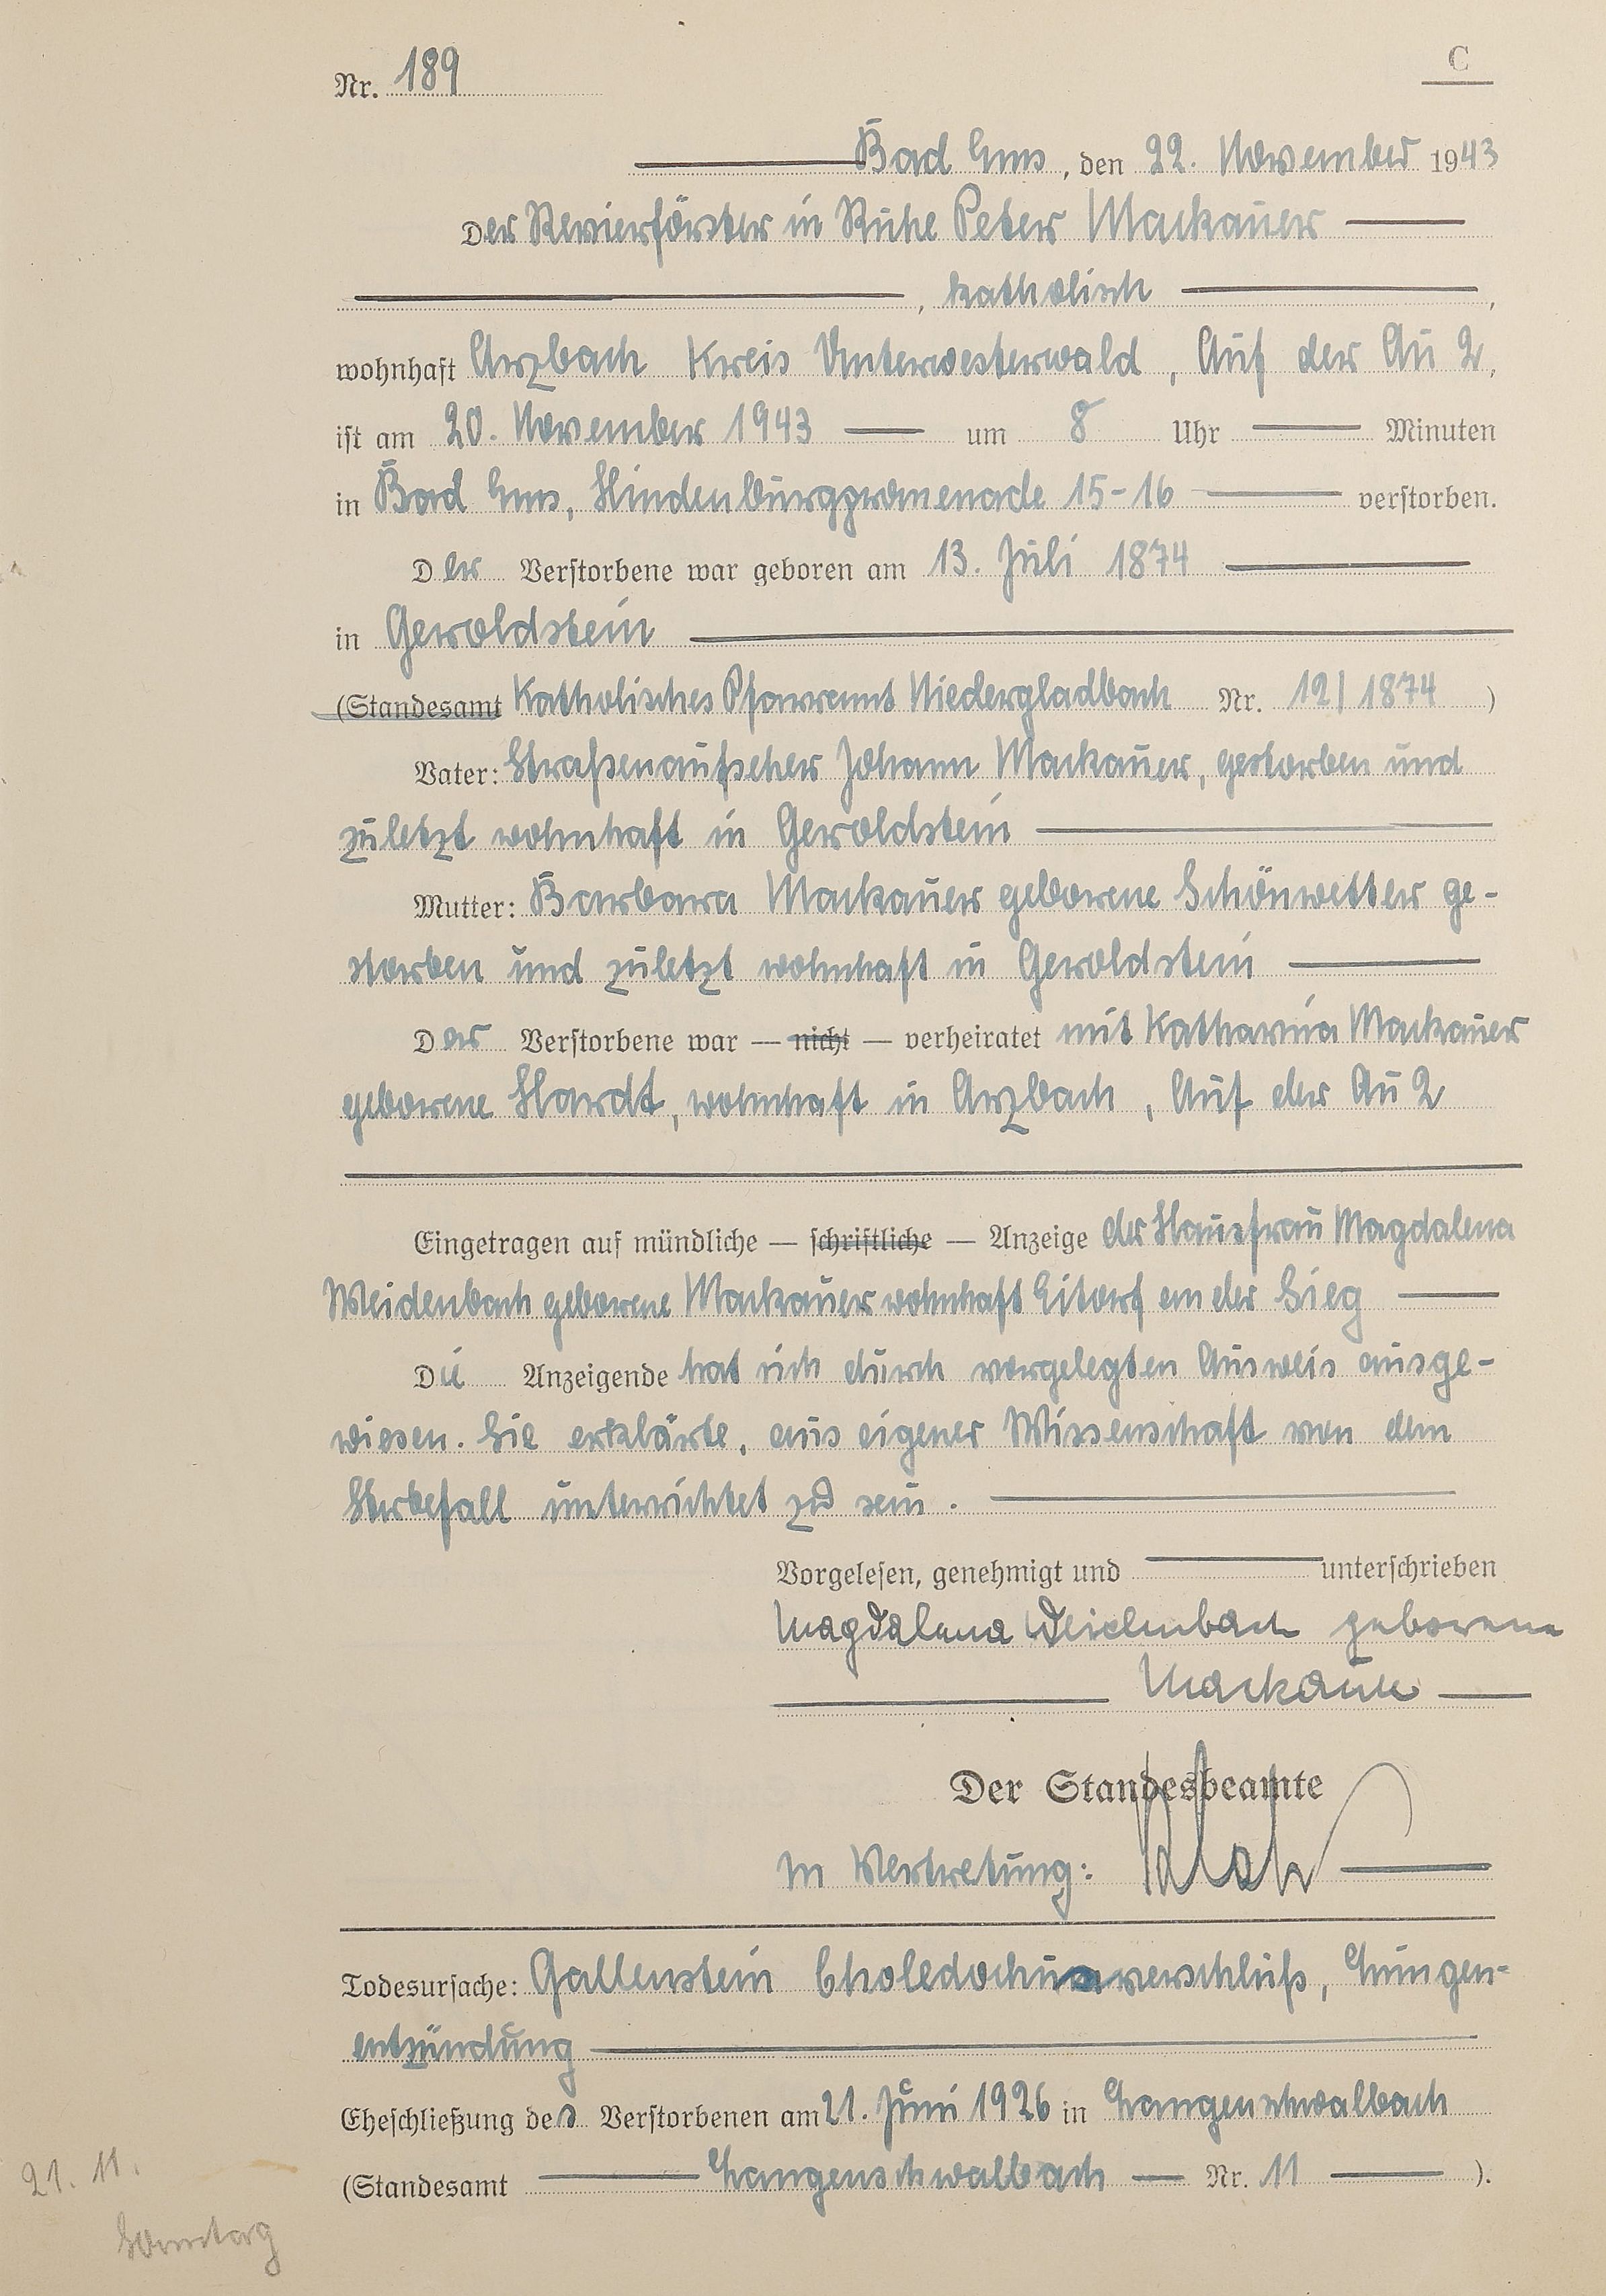 Nr. 189
C
Bad Ems, den 22. November 1943
Der Revierförster in Ruhe Peter Mackauer
, katholisch ,
wohnhaft Arzbach Kreis Unterwesterwald, Auf der Au 2,
ist am 20. November 1943 um 8 Uhr Minuten
in Bad Ems, Hindenburgpromenade 15-16 verstorben.
Der Verstorbene war geboren am 13. Juli 1874
in Geroldstein
(Standesamt Katholisches Pfarramt Niedergladbach Nr. 12/1874 )
Vater: Straßenaufseher Johann Mackauer, gestorben und
zuletzt wohnhaft in Geroldstein
Mutter: Barbara Mackauer geborene Schönwetter ge-
storben und zuletzt wohnhaft in Geroldstein
Der Verstorbene war — nicht — verheiratet mit Katharina Mackauer
geborene Hardt, wohnhaft in Arzbach, Auf der Au 2
Eingetragen auf mündliche — schriftliche — Anzeige der Hausfrau Magdalena
Weidenbach geborene Mackauer wohnhaft Eitorf an der Sieg
Die Anzeigende hat sich durch vorgelegten Ausweis ausge-
wiesen. Sie erklärte, aus eigener Wissenschaft von dem
Sterbefall unterrichtet zu sein.
Vorgelesen, genehmigt und unterschrieben
Magdalena Weidenbach geborene
Mackauer
Der Standesbeamte
In Vertretung:
Todesursache: Gallenstein Choledochusverschluß, Lungen-
entzündung
Eheschließung des Verstorbenen am 21. Juni 1926 in Langenschwalbach
(Standesamt Langenschwalbach Nr. 11 ).
21. 11.
Sonntag